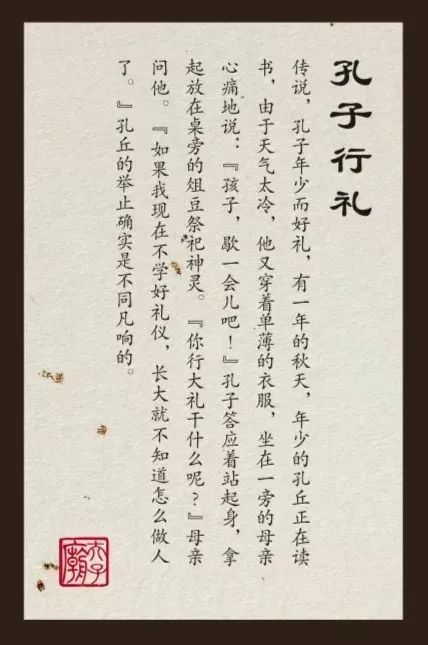 孔子行礼
传说，孔子年少而好礼，有一年的秋天，年少的孔丘正在读
书，由于天气太冷，他又穿着单薄的衣服，坐在一旁的母亲
心痛地说：『孩子，歇一会儿吧！』孔子答应着站起身，拿
起放在桌旁的俎豆祭祀神灵。『你行大礼干什么呢？』母亲
问他。『如果我现在不学好礼仪，长大就不知道怎么做人
了。』孔丘的举止确实是不同凡响的。